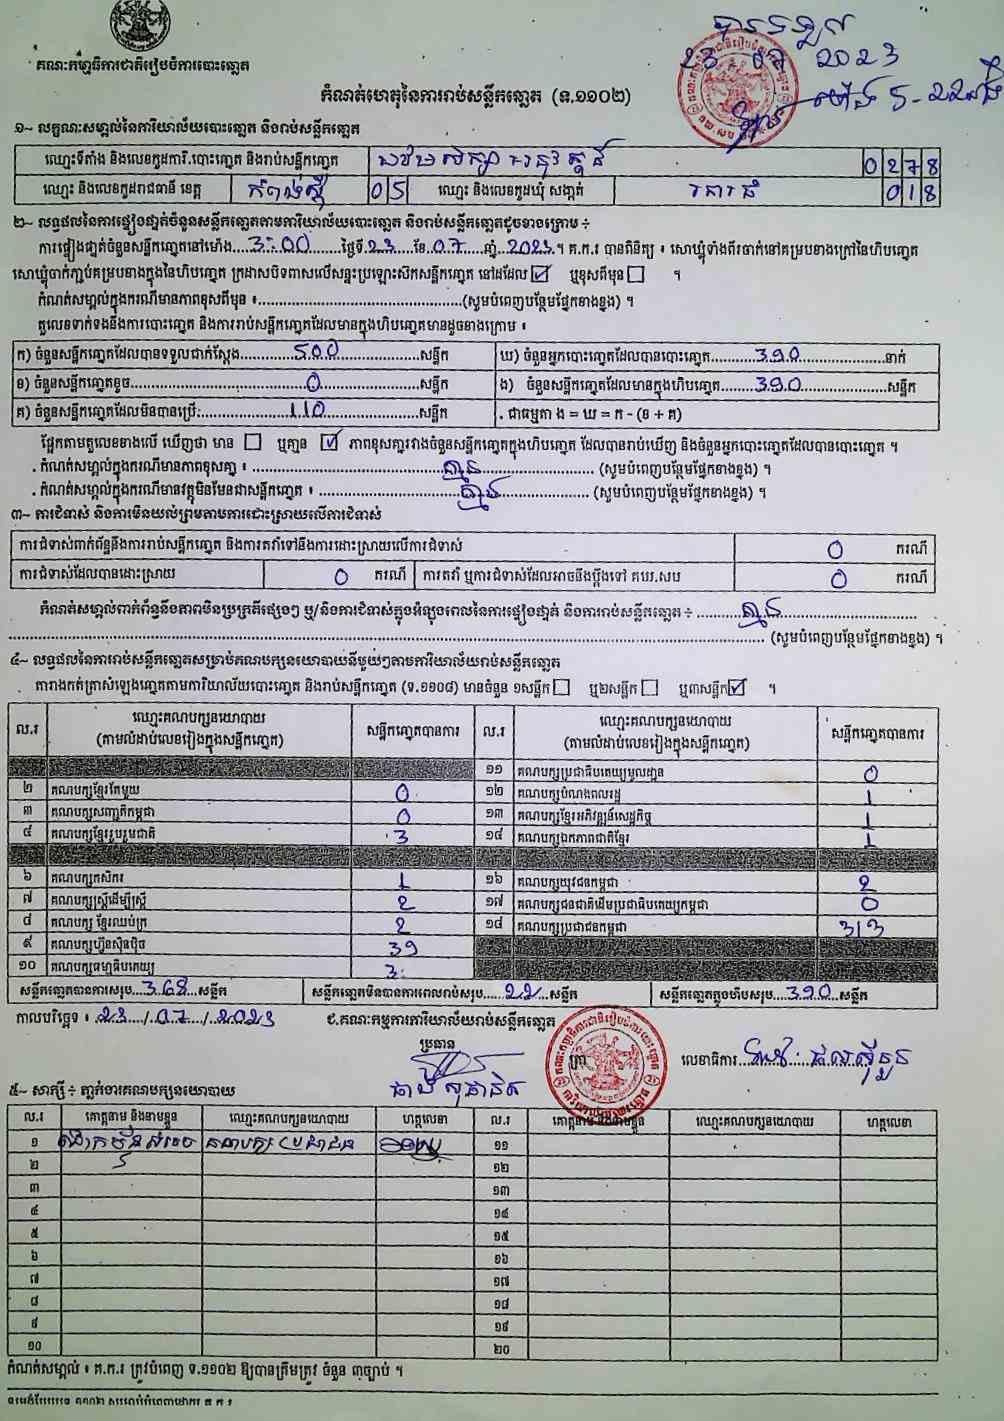 គណៈកម្មាធិការជាតិរៀបចំការបោះឆ្នោត
2023
កំណត់ហេតុនៃការរាប់សន្លឹកឆ្នោត (ទ.១១០២)
១~ លក្ខណៈសម្គាល់នៃការិយាល័យបោះឆ្នោត និងរាប់សន្លឹកឆ្នោត
ឈ្មោះទីតាំង និងលេខកូដការិ.បោះឆ្នោត និងរាប់សន្លឹកឆ្នោត 0278
ឈ្មោះ និងលេខកូដរាជធានី ខេត្ត កំពង់ស្ពឺ 05 ឈ្មោះ និងលេខកូដឃុំ សង្កាត់ 018
២~ លទ្ធផលនៃការផ្ទៀងផ្ទាត់ចំនួនសន្លឹកឆ្នោតតាមការិយាល័យបោះឆ្នោត និងរាប់សន្លឹកឆ្នោតដូចខាងក្រោម ÷
ការផ្ទៀងផ្ទាត់ចំនួនសន្លឹកឆ្នោតនៅម៉ោង 3:00 ថ្ងៃទី 23 ខែ 07 ឆ្នាំ 2023 ។ គ.ក.រ បានពិនិត្យ ៖ សោឃ្លុំទាំងពីរចាក់នៅគម្របខាងក្រៅនៃហិបឆ្នោត
សោឃ្លុំចាក់ភ្ជាប់គម្របខាងក្នុងនៃហិបឆ្នោត ក្រដាសបិទពាសលើសន្ទះប្រឡោះសិកសន្លឹកឆ្នោត នៅដដែល ☑ ឬខុសពីមុន ☐ ។
កំណត់សម្គាល់ក្នុងករណីមានភាពខុសពីមុន ៖ (សូមបំពេញបន្ថែមផ្នែកខាងខ្នង) ។
តួលេខទាក់ទងនឹងការបោះឆ្នោត និងការរាប់សន្លឹកឆ្នោតដែលមានក្នុងហិបឆ្នោតមានដូចខាងក្រោម ៖
ក) ចំនួនសន្លឹកឆ្នោតដែលបានទទួលជាក់ស្តែង 500 សន្លឹក ឃ) ចំនួនអ្នកបោះឆ្នោតដែលបានបោះឆ្នោត 390 នាក់
ខ) ចំនួនសន្លឹកឆ្នោតខូច 0 សន្លឹក ង) ចំនួនសន្លឹកឆ្នោតដែលមានក្នុងហិបឆ្នោត 390 សន្លឹក
គ) ចំនួនសន្លឹកឆ្នោតដែលមិនបានប្រើ: 110 សន្លឹក . ជាធម្មតា ង = ឃ = ក - (ខ + គ)
ផ្អែកតាមតួលេខខាងលើ ឃើញថា មាន ☐ ឬគ្មាន ☑ ភាពខុសគ្នារវាងចំនួនសន្លឹកឆ្នោតក្នុងហិបឆ្នោត ដែលបានរាប់ឃើញ និងចំនួនអ្នកបោះឆ្នោតដែលបានបោះឆ្នោត ។
. កំណត់សម្គាល់ក្នុងករណីមានភាពខុសគ្នា ៖ គ្មាន (សូមបំពេញបន្ថែមផ្នែកខាងខ្នង) ។
. កំណត់សម្គាល់ក្នុងករណីមានវត្ថុមិនមែនជាសន្លឹកឆ្នោត ៖ គ្មាន (សូមបំពេញបន្ថែមផ្នែកខាងខ្នង) ។
៣~ ការជំទាស់ និងការមិនយល់ព្រមតាមការដោះស្រាយលើការជំទាស់
ការជំទាស់ពាក់ព័ន្ធនឹងការរាប់សន្លឹកឆ្នោត និងការតវ៉ាទៅនឹងការដោះស្រាយលើការជំទាស់ 0 ករណី
ការជំទាស់ដែលបានដោះស្រាយ 0 ករណី ការតវ៉ា ឬការជំទាស់ដែលអាចនឹងប្តឹងទៅ គឃ.សប 0 ករណី
កំណត់សម្គាល់ពាក់ព័ន្ធនឹងភាពមិនប្រក្រតីផ្សេងៗ ឬ/និងការជំទាស់ក្នុងអំឡុងពេលនៃការផ្ទៀងផ្ទាត់ និងការរាប់សន្លឹកឆ្នោត ÷ គ្មាន
(សូមបំពេញបន្ថែមផ្នែកខាងខ្នង) ។
៤~ លទ្ធផលនៃការរាប់សន្លឹកឆ្នោតសម្រាប់គណបក្សនយោបាយនីមួយៗតាមការិយាល័យរាប់សន្លឹកឆ្នោត
តារាងកត់ត្រាសំឡេងឆ្នោតតាមការិយាល័យបោះឆ្នោត និងរាប់សន្លឹកឆ្នោត (ទ.១១០៨) មានចំនួន ១សន្លឹក ☐ ឬ២សន្លឹក ☐ ឬ៣សន្លឹក ☑ ។
ល.រ ឈ្មោះគណបក្សនយោបាយ (តាមលំដាប់លេខរៀងក្នុងសន្លឹកឆ្នោត) សន្លឹកឆ្នោតបានការ ល.រ ឈ្មោះគណបក្សនយោបាយ (តាមលំដាប់លេខរៀងក្នុងសន្លឹកឆ្នោត) សន្លឹកឆ្នោតបានការ
១១ គណបក្សប្រជាធិបតេយ្យមូលដ្ឋាន 0
២ គណបក្សខ្មែរតែមួយ 0 ១២ គណបក្សបំណងពលរដ្ឋ 1
៣ គណបក្សសញ្ជាតិកម្ពុជា 0 ១៣ គណបក្សខ្មែរអភិវឌ្ឍន៍សេដ្ឋកិច្ច 1
៤ គណបក្សខ្មែររួបរួមជាតិ 3 ១៤ គណបក្សឯកភាពជាតិខ្មែរ 1
៦ គណបក្សកសិករ 1 ១៦ គណបក្សយុវជនកម្ពុជា 2
៧ គណបក្សស្ត្រីដើម្បីស្ត្រី 2 ១៧ គណបក្សជនជាតិដើមប្រជាធិបតេយ្យកម្ពុជា 0
៨ គណបក្ស ខ្មែរឈប់ក្រ 2 ១៨ គណបក្សប្រជាជនកម្ពុជា 313
៩ គណបក្សហ៊្វុនស៊ិនប៉ិច 39
១០ គណបក្សធម្មាធិបតេយ្យ 3
សន្លឹកឆ្នោតបានការសរុប 368 សន្លឹក សន្លឹកឆ្នោតមិនបានការពេលរាប់សរុប 22 សន្លឹក សន្លឹកឆ្នោតក្នុងហិបសរុប 390 សន្លឹក
កាលបរិច្ឆេទ ៖ 23/07/2023 ជ.គណៈកម្មការការិយាល័យរាប់សន្លឹកឆ្នោត
ប្រធាន លេខាធិការ
៥~ សាក្សី ÷ ភ្នាក់ងារគណបក្សនយោបាយ
ល.រ គោត្តនាម និងនាមខ្លួន ឈ្មោះគណបក្សនយោបាយ ហត្ថលេខា ល.រ គោត្តនាម និងនាមខ្លួន ឈ្មោះគណបក្សនយោបាយ ហត្ថលេខា
១ គណបក្ស ប្រជាជន ១១
២ ១២
៣ ១៣
៤ ១៤
៥ ១៥
៦ ១៦
៧ ១៧
៨ ១៨
៩ ១៩
១០ ២០
កំណត់សម្គាល់ ៖ គ.ក.រ ត្រូវបំពេញ ទ.១១០២ ឱ្យបានត្រឹមត្រូវ ចំនួន ៣ច្បាប់ ។